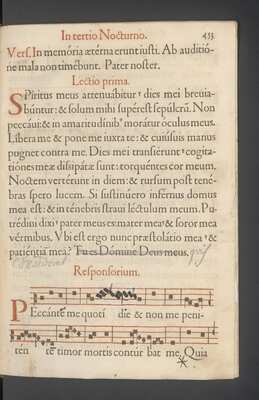 In tertio Nocturno. 453
Vers. In memória ætérna erunt iusti. Ab auditió-
ne mala non timêbunt. Pater noster.
Lectio prima.
SPíritus meus attenuábitur: dies mei breuia-
búntur: & solum mihi supérest sepúlcrũ. Non
peccáui: & in amaritúdinib⁹ morátur óculus meus.
Líbera me & pone me iuxta te: & cuiúsuis manus
pugnet contra me. Dies mei transiérunt: cogita-
tiónes meæ dissipátæ sunt: torquéntes cor meum.
Noctem vertérunt in diem: & rursum post tené-
bras spero lucem. Si sustinúero inférnus domus
mea est: & in ténebris straui léctulum meum. Pu-
trédini dixi: pater meus es: mater mea: & soror mea
vérmibus. Vbi est ergo nunc præstolátio mea: &
patiéntia mea? Tu es Dómine Deus meus.
Responsorium.
PEccánte me quotí die & non me peni-
tén te timor mortis contur bat me. Quia